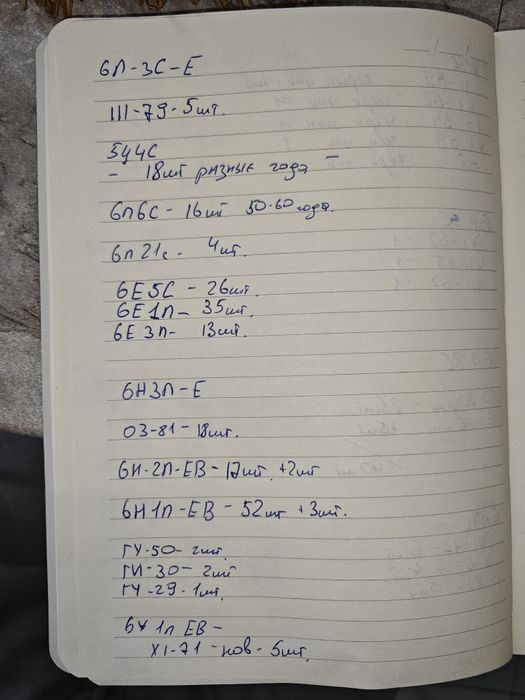 6П-3С-Е
III-79-5шт.
5Ц4С
- 18шт разные года -
6П6С - 16шт 50-60 года.
6П21с - 4шт.
6Е5С - 26шт.
6Е1П - 35шт.
6Е3П - 13шт.
6Н3П-Е
03-81-18шт.
6И-2П-ЕВ - 17шт. +2шт
6Н1П-ЕВ - 52шт + 3шт.
ГУ-50-2шт.
ГИ-30-2шт
ГУ-29-1шт.
1п ЕВ -
XI-71 - нов - 5шт.